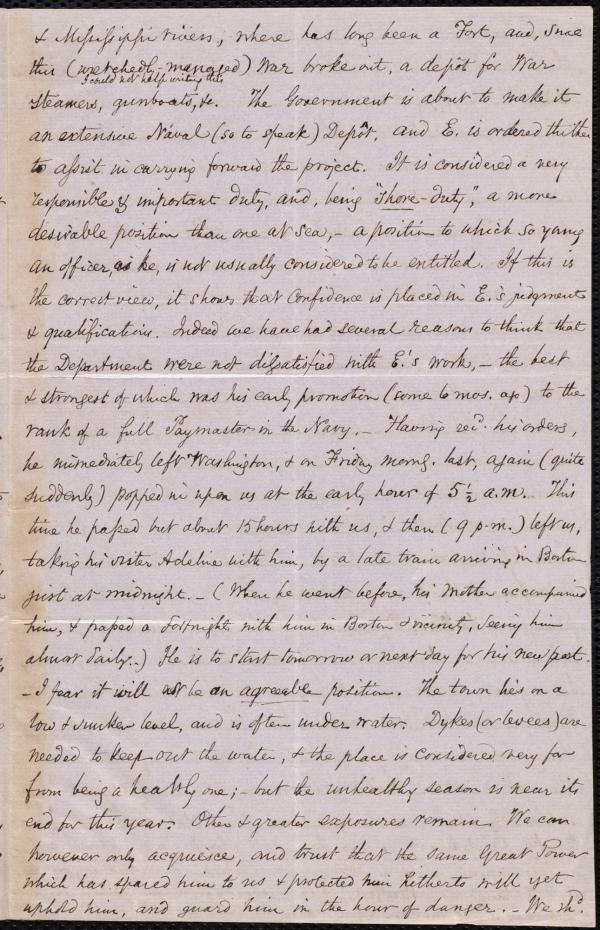 & Mississippi rivers, where has long been a Fort, and, since
this (wretchedly-managed) War broke out, a depôt for War
I could not help writing this
steamers, gunboats, &c. The Government is about to make it
an extensive Naval (so to speak) Depôt, and E. is ordered thither
to assist in carrying forward the project. It is considered a very
responsible & important duty, and, being "Shore-duty", a more
desirable position than one at Sea, - a position to which so young
an officer, as he, is not usually considered to be entitled. If this is
the correct view, it shows that Confidence is placed in E.'s judgment
& qualifications. Indeed we have had several reasons to think that
the Department were not dissatisfied with E.'s work, - the best
& strongest of which was his early promotion (some 6 mos. ago) to the
rank of a full Paymaster in the Navy. - Having recd. his orders,
he immediately left Washington, & on Friday morng. last, again (quite
suddenly) popped in upon us at the early hour of 5½ a.m. This
time he passed but about 15 hours with us, & then (9 p.m.) left us,
taking his sister Adeline with him, by a late train arriving in Boston
just at midnight. - (When he went before, his Mother accompanied
him, & passed a fortnight with him in Boston & vicinity, seeing him
almost daily..) He is to start tomorrow or next day for his new post.
- I fear it will not be an agreeable position. The town lies on a
low & sunken level, and is often under water. Dykes (or levees) are
needed to keep out the water, & the place is considered very far
from being a healthy one; - but the unhealthy season is near its
end for this year. Other & greater exposures remain. We can
however only acquiesce, and trust that the same Great Power
which has spared him to us & protected him hitherto will yet
uphold him, and guard him in the hour of danger. - We shd.